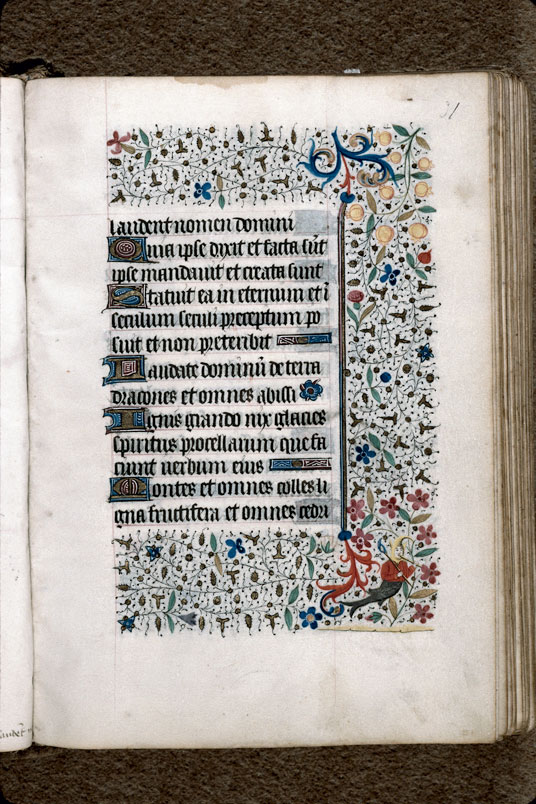 31
laudent nomen domini
Quia ipse dixit et facta sūt
ipse mandauit et creata sunt
Statuit ea in eternum et ī
seculum seculi preceptum po
suit et non preteribit
Laudate dominū de terra
dracones et omnes abissi
Ignis grando nix glacies
spiritus procellarum que fa
ciunt uerbum eius
Montes et omnes colles li
gna fructifera et omnes cedri